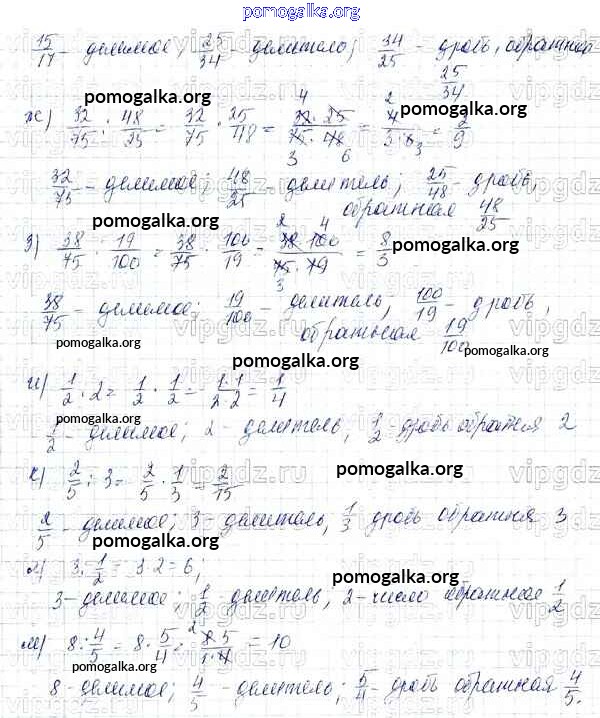 pomogalka.org
15/17 - делимое; 25/34 - делитель; 34/25 - дробь, обратная 25/34
pomogalka.org pomogalka.org
ж) 32/75 : 48/25 = 32/75 · 25/48 = 32·25/75·48 = 4/3·6 = 2/9
32/75 - делимое; 48/25 - делитель; 25/48 - дробь,
обратная 48/25
pomogalka.org
з) 38/75 : 19/100 = 38/75 · 100/19 = 38·100/75·19 = 8/3
pomogalka.org
38/75 - делимое; 19/100 - делитель; 100/19 - дробь,
обратная 19/100
pomogalka.org pomogalka.org
pomogalka.org
и) 1/2 : 2 = 1/2 · 1/2 = 1·1/2·2 = 1/4
pomogalka.org
1/2 - делимое; 2 - делитель, 1/2 - дробь обратная 2
к) 2/5 : 3 = 2/5 · 1/3 = 2/15
pomogalka.org
2/5 - делимое; 3 - делитель, 1/3 дробь обратная 3
pomogalka.org
л) 3 : 1/2 = 3·2 = 6;
pomogalka.org
3 - делимое; 1/2 - делитель; 2 - число обратное 1/2
pomogalka.org
м) 8 : 4/5 = 8 · 5/4 = 8·5/1·4 = 10
pomogalka.org
8 - делимое; 4/5 - делитель; 5/4 - дробь обратная 4/5.
vipgdz.ru